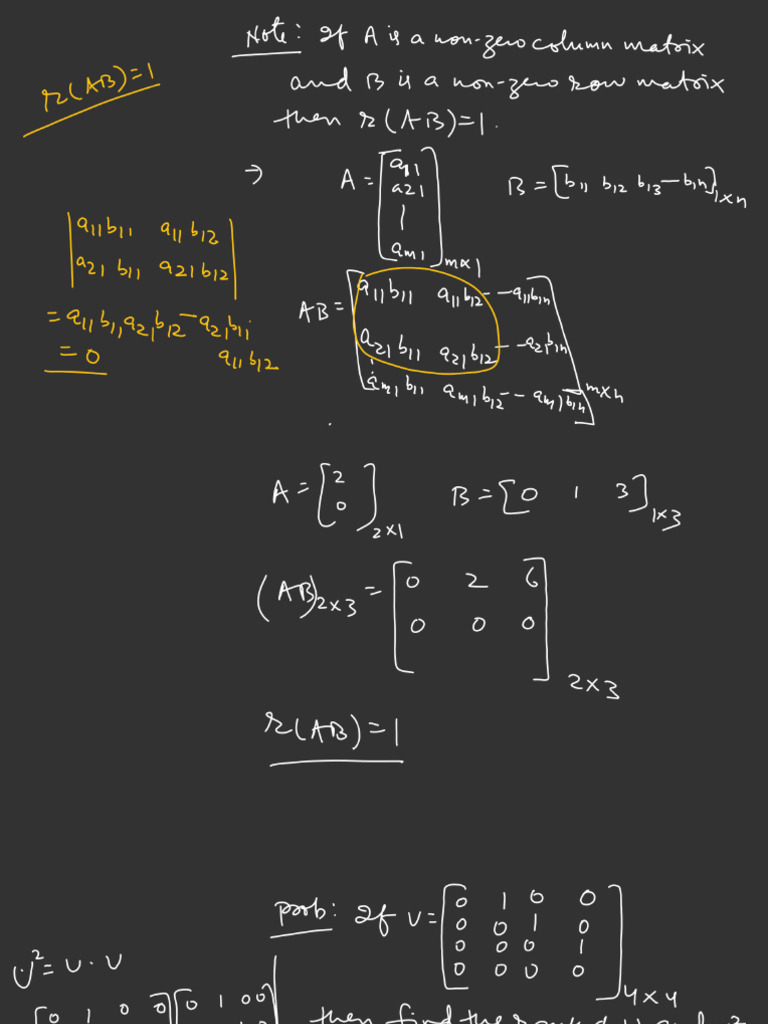 Note: If A is a non-zero column matrix
and B is a non-zero row matrix
then r(AB)=1.
r(AB)=1
→ A = [a11 a21 | am1]m×1 B = [b11 b12 b13 — b1n]1×n
AB = [a11b11 a11b12 - - a11b1n
a21b11 a21b12 - - a21b1n
⋮
am1b11 am1b12 - - am1b1n]m×n
|a11b11 a11b12|
|a21b11 a21b12|
= a11b11a21b12 - a21b11
a11b12
= 0
A = [2 0]2×1 B = [0 1 3]1×3
(AB)2×3 = [0 2 6
0 0 0]2×3
r(AB)=1
prob: If U = [0 1 0 0
0 0 1 0
0 0 0 1
0 0 0 0]4×4
U² = U · U
[0 1 0 0] [0 1 0 0
then find the